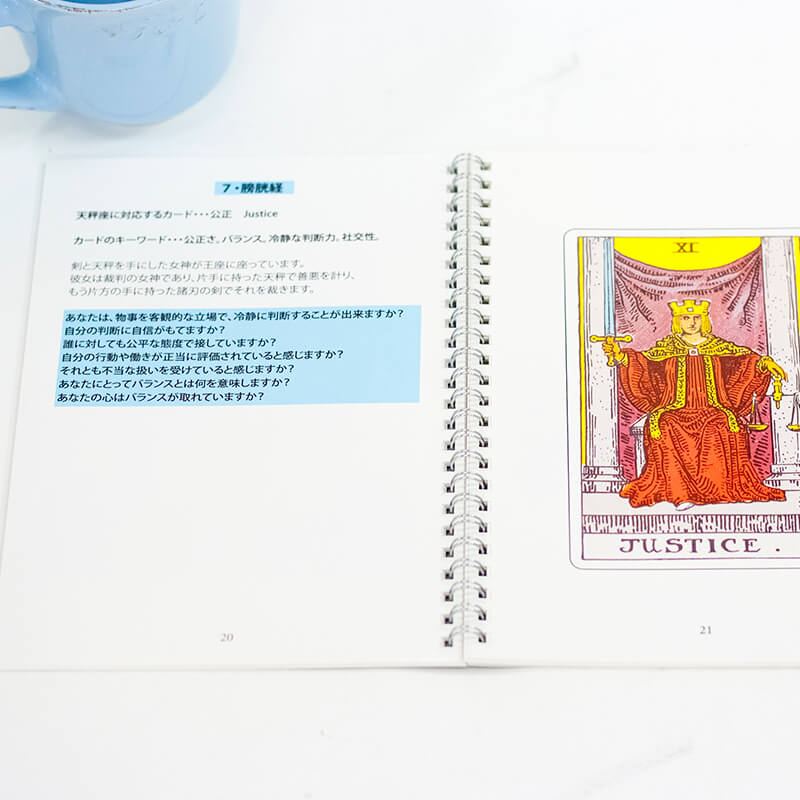 7・膀胱経
天秤座に対応するカード・・・公正 Justice
カードのキーワード・・・公正さ。バランス。冷静な判断力。社交性。
剣と天秤を手にした女神が王座に座っています。
彼女は裁判の女神であり、片手に持った天秤で善悪を計り、
もう片方の手に持った諸刃の剣でそれを裁きます。
あなたは、物事を客観的な立場で、冷静に判断することが出来ますか?
自分の判断に自信がもてますか?
誰に対しても公平な態度で接していますか?
自分の行動や働きが正当に評価されていると感じますか?
それとも不当な扱いを受けていると感じますか?
あなたにとってバランスとは何を意味しますか?
あなたの心はバランスが取れていますか?
20
XI
JUSTICE.
21